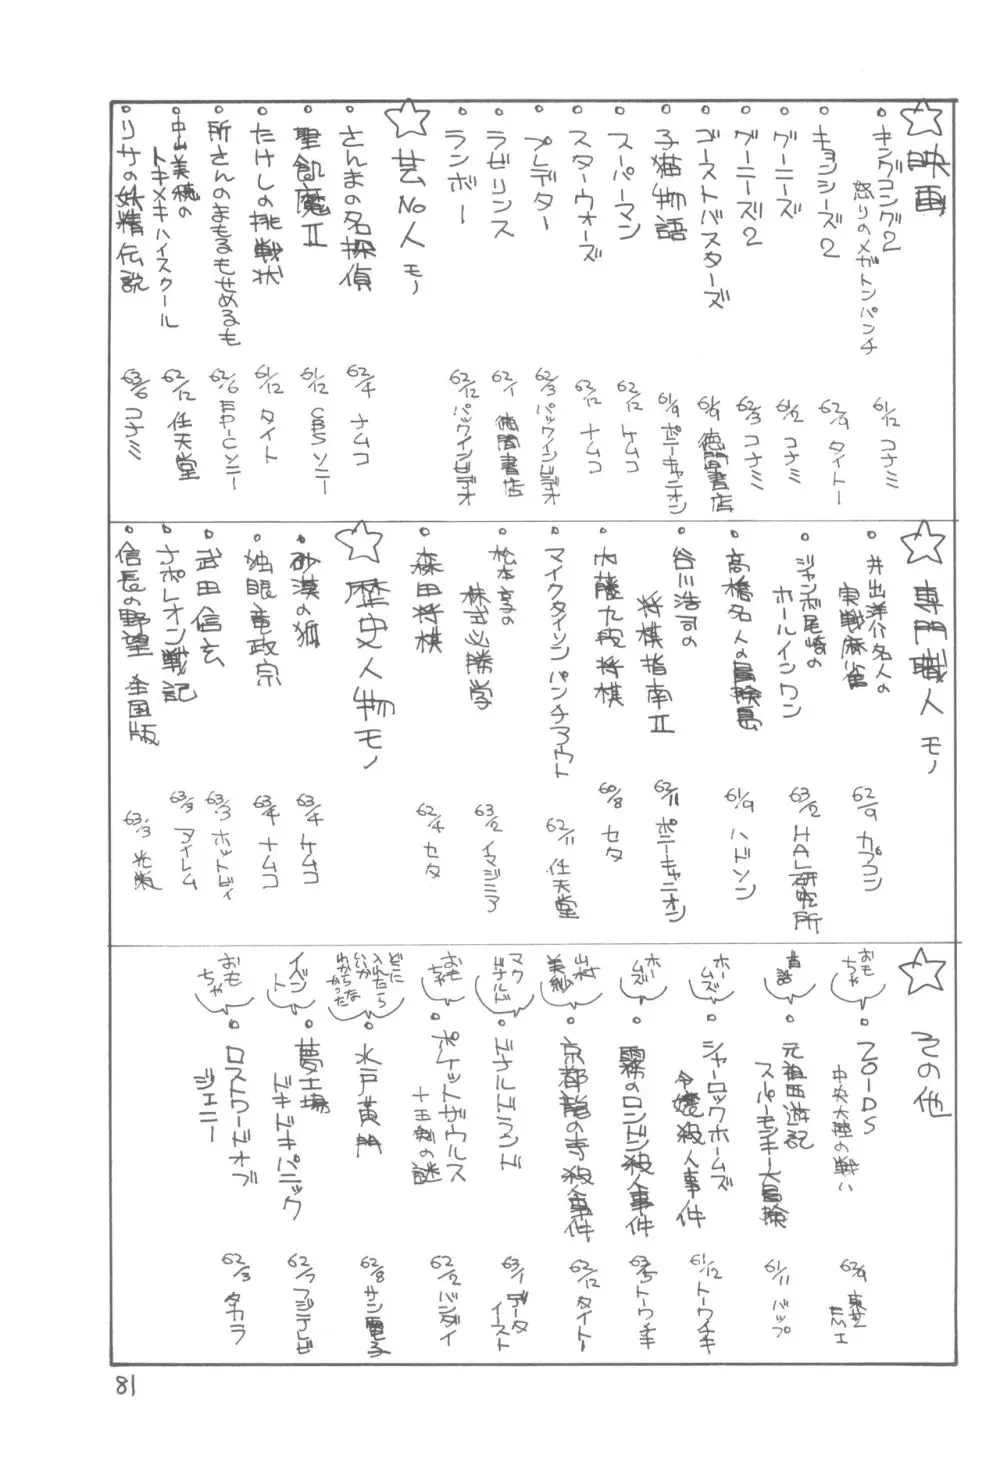 ☆映画
キングコング2
怒りのメガトンパンチ
61/12 コナミ
キョンシーズ2
62/9 タイトー
グーニーズ
61/2 コナミ
グーニーズ2
62/3 コナミ
ゴーストバスターズ
61/9 徳間書店
子猫物語
61/9 ポニーキャニオン
スーパーマン
62/12 ケムコ
スターウォーズ
62/12 ナムコ
プレデター
62/3 パックインビデオ
ラビリンス
62/1 徳間書店
ランボー
62/12 パックインビデオ
☆芸NO人モノ
さんまの名探偵
62/4 ナムコ
聖飢魔Ⅱ
61/12 CBSソニー
たけしの挑戦状
61/12 タイト
所さんのまもるもせめるも
62/6 EPICソニー
中山美穂の
トキメキハイスクール
62/12 任天堂
リサの妖精伝説
63/6 コナミ
☆専門職人モノ
井出洋介名人の
実戦麻雀
62/9 カプコン
ジャンボ尾崎の
ホールインワン
63/2 HAL研究所
高橋名人の冒険島
61/9 ハドソン
谷川浩司の
将棋指南Ⅱ
62/11 ポニーキャニオン
内藤九段将棋
60/8 セタ
マイクタイソンパンチアウト
62/11 任天堂
松本亨の
株式必勝学
63/2 イマジニア
森田将棋
62/4 セタ
☆歴史人物モノ
砂漠の狐
63/4 ケムコ
独眼竜政宗
63/4 ナムコ
武田信玄
63/3 ホットビィ
ナポレオン戦記
63/3 アイレム
信長の野望 全国版
63/3 光栄
☆その他
おもちゃ
ZOIDS
中央大陸の戦い
62/9 東芝EMI
昔話
元祖西遊記
スーパーモンキー大冒険
61/11 バップ
ホームズ
シャーロックホームズ
令嬢殺人事件
61/12 トーワチキ
ホームズ
霧のロンドン殺人事件
63/5 トーワチキ
山村美紗
京都龍の寺殺人事件
62/12 タイトー
マクドナルド
ドナルドランド
63/1 データイースト
おもちゃ
ポケットザウルス
十王剣の謎
62/2 バンダイ
どこに入れたらいいかわからなかった
水戸黄門
62/8 サン電子
イベント
夢工場
ドキドキパニック
62/7 フジテレビ
おもちゃ
ロストワードオブ
ジェニー
62/3 タカラ
81